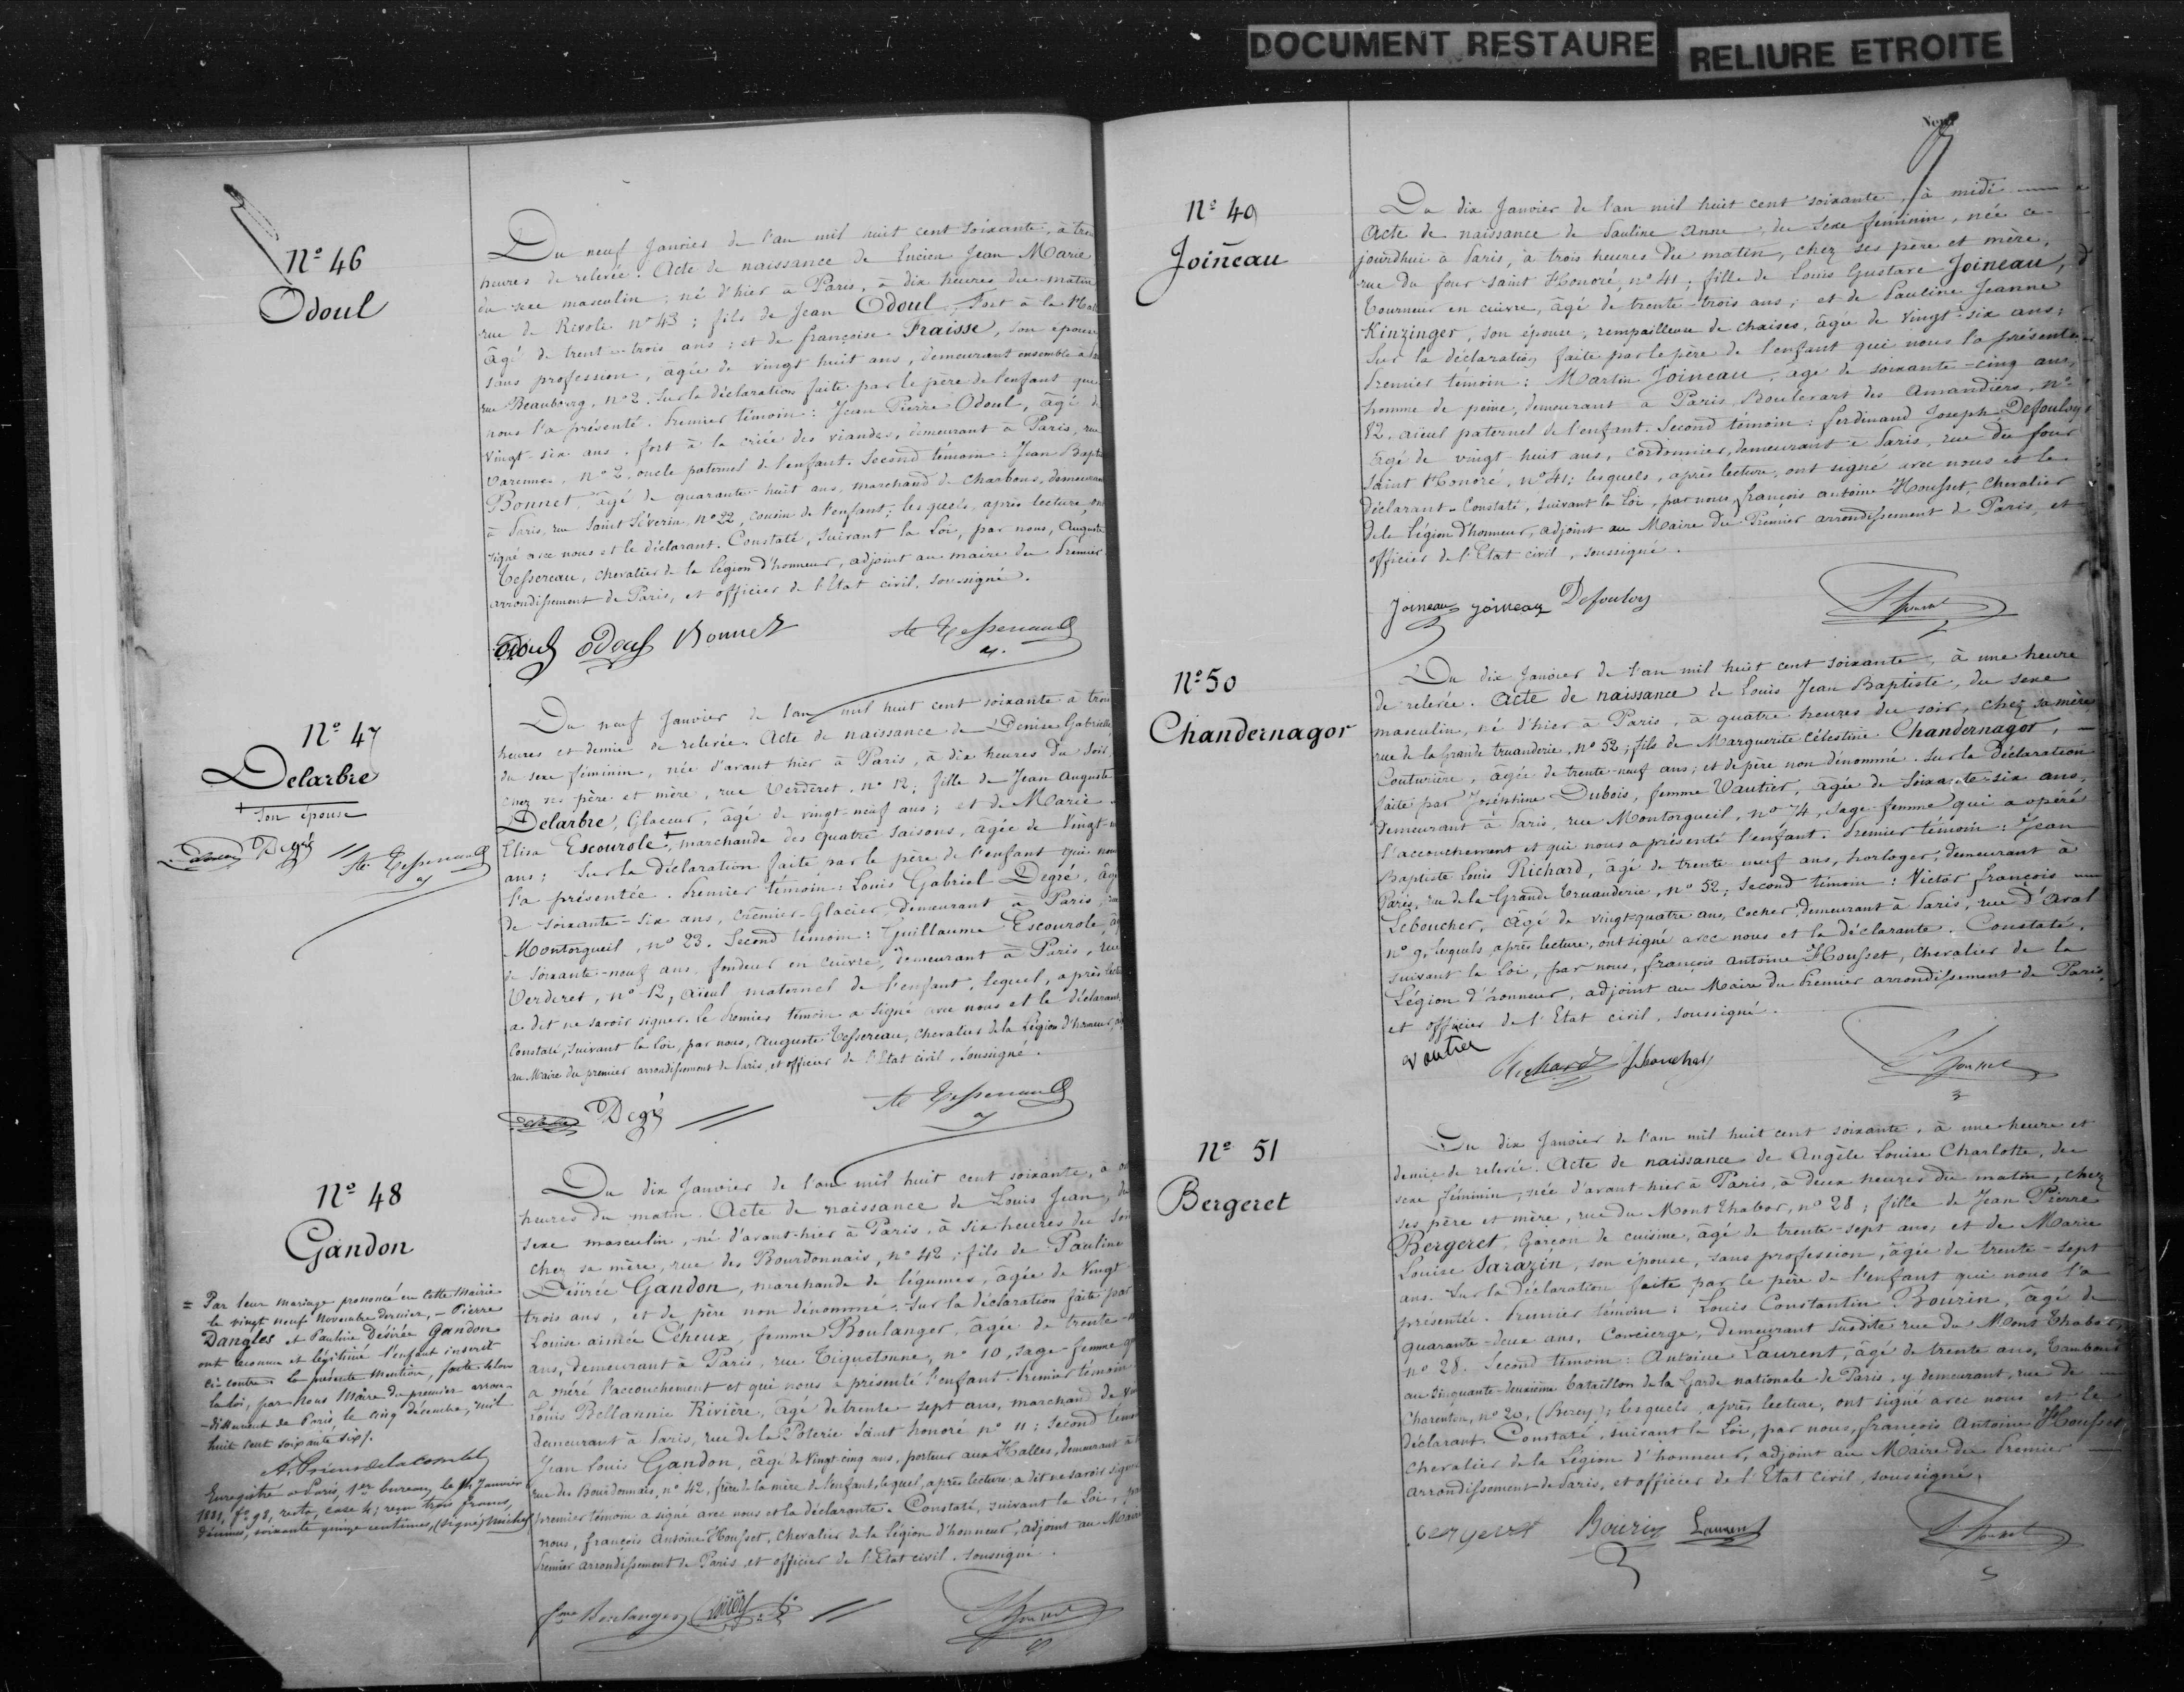 DOCUMENT RESTAURE
RELIURE ETROITE
Nº 46
Odoul
Du neuf Janvier de l'an mil huit cent soixante, à
heures de relevée. Acte de naissance de Lucien Jean Marie
du sexe masculin; né d'hier à Paris, à dix heures du matin
rue de Rivoli nº 43; fils de Jean Odoul, fort à la
âgé de trente-trois ans; et de françoise Fraisse, son épouse
sans profession, âgée de vingt huit ans, demeurant ensemble à
rue Beaubourg, nº 2. Sur la déclaration faite par le père de l'enfant qui
nous l'a présenté. Premier témoin: Jean Pierre Odoul, âgé de
vingt-six ans, fort à la criée des viandes, demeurant à Paris, rue
Varennes, nº 2, oncle paternel de l'enfant. Second témoin: Jean
Bonnet, âgé de quarante-huit ans, marchand de charbons, demeurant
à Paris, rue Saint Séverin, nº 22, cousin de l'enfant; lesquels, après lecture, ont
signé avec nous et le déclarant. Constaté, suivant la Loi, par nous, Auguste
Tessereau, chevalier de la légion d'honneur, adjoint au maire du Premier
arrondissement de Paris, et officier de l'Etat civil, soussigné.
Odoul Odoul Bonnet Ate Tessereau
Nº 47
Delarbre
+ son épouse
Degré Ate Tessereau
Du neuf Janvier de l'an mil huit cent soixante à trois
heures et demie de relevée. Acte de naissance de Denise Gabrielle,
du sexe féminin, née d'avant hier à Paris, à dix heures du soir,
chez ses père et mère, rue Verderet, nº 12; fille de Jean Auguste
Delarbre, Glaceur, âgé de vingt-neuf ans; et de Marie
Elisa Escourole +, marchande des quatre saisons, âgée de Vingt
ans; Sur la déclaration faite par le père de l'enfant qui nous
l'a présentée. Premier témoin: Louis Gabriel Degré, âgé
de soixante-six ans, crêmier-Glacier, demeurant à Paris, rue
Montorgueil, nº 23. Second témoin: Guillaume Escourole,
de soixante-neuf ans, fondeur en cuivre, demeurant à Paris, rue
Verderet, nº 12, aïeul maternel de l'enfant, lequel, après lecture
a dit ne savoir signer. le Premier témoin a signé avec nous et le déclarant.
Constaté, suivant la loi, par nous, Auguste Tessereau, Chevalier de la Légion d'honneur,
au Maire du premier arrondissement de Paris, et officier de l'Etat civil, soussigné.
Degré Ate Tessereau
Nº 48
Gandon
= Par leur mariage prononcé en cette Mairie
le vingt neuf Novembre dernier, - Pierre
Dangles et Pauline Désirée Gandon
ont reconnu et légitimé l'enfant inscrit
ci-contre. la présente Mention, faite selon
la loi, par nous Maire du premier arron-
-dissement de Paris, le cinq décembre, mil
huit cent soixante six.
Enregistré à Paris, 1er bureau, le Janvier
1881, fº 98, recto, case 4; reçu trois francs,
décimes, soixante quinze centimes, (signé) Michel
Du dix Janvier de l'an mil huit cent soixante, à
heures du matin. Acte de naissance de Louis Jean, du
sexe masculin, né d'avant-hier à Paris, à six heures du soir
chez sa mère, rue des Bourdonnais, nº 42; fils de Pauline
Désirée Gandon, marchande de légumes, âgée de Vingt
trois ans, et de père non dénommé. Sur la déclaration faite par
Louise aimée Céheux, femme Boulanger, âgée de trente
ans, demeurant à Paris, rue Tiquetonne, nº 10, sage-femme qui
a opéré l'accouchement et qui nous a présenté l'enfant. Premier témoin
Louis Bellannie Rivière, âgé de trente-sept ans, marchand de
demeurant à Paris, rue de la Poterie Saint honoré nº 11; Second témoin
Jean Louis Gandon, âgé de Vingt cinq ans, porteur aux Halles, demeurant à
rue des Bourdonnais, nº 42, frère de la mère de l'enfant, lequel, après lecture a dit ne savoir signer
premier témoin a signé avec nous et la déclarante. Constaté, suivant la Loi,
nous, françois Antoine Housset, chevalier de la légion d'honneur, adjoint au Maire
Premier arrondissement de Paris, et officier de l'Etat civil, soussigné.
fme Boulanger
Neuf
9
Nº 49
Joineau
Du dix Janvier de l'an mil huit cent soixante, à midi
Acte de naissance de Pauline Anne, du sexe féminin, née ce
jourdhui à Paris, à trois heures du matin, chez ses père et mère,
rue du four Saint Honoré, nº 41; fille de Louis Gustave Joineau,
Tourneur en cuivre, âgé de trente-trois ans; et de Pauline Jeanne
Kinzinger, son épouse, rempailleuse de chaises, âgée de vingt-six ans;
Sur la déclaration faite par le père de l'enfant qui nous l'a présentée.
Premier témoin: Martin Joineau, âgé de soixante-cinq ans,
homme de peine, demeurant à Paris, Boulevart des Amandiers, nº
82, aïeul paternel de l'enfant. Second témoin: ferdinand Joseph Defouloy,
âgé de vingt huit ans, cordonnier, demeurant à Paris, rue du four
Saint Honoré, nº 41; lesquels, après lecture, ont signé avec nous et le
déclarant. Constaté, suivant la Loi, par nous, françois antoine Housset, Chevalier
de la légion d'honneur, adjoint au Maire du Premier arrondissement de Paris, et
officier de l'Etat civil, soussigné.
Joineau joineau Defouloy
Nº 50
Chandernagor
Du dix Janvier de l'an mil huit cent soixante, à une heure
de relevée. Acte de naissance de Louis Jean Baptiste, du sexe
masculin, né d'hier à Paris, à quatre heures du soir, chez sa mère
rue de la Grande truanderie, nº 52; fils de Marguerite Célestine Chandernagor,
Couturière, âgée de trente-neuf ans; et de père non dénommé. Sur la déclaration
faite par Joséphine Dubois, femme Vautier, âgée de Soixante-six ans,
demeurant à Paris, rue Montorgueil, nº 74, sage-femme qui a opéré
l'accouchement et qui nous a présenté l'enfant. Premier témoin: Jean
Baptiste Louis Richard, âgé de trente neuf ans, horloger, demeurant à
Paris, rue de la Grande Truanderie, nº 52; Second témoin: Victor françois
Leboucher, âgé de vingt-quatre ans, cocher, demeurant à Paris, rue d'Aval
nº 9, lesquels, après lecture, ont signé avec nous et la déclarante. Constaté,
suivant la Loi, par nous, françois antoine Housset, chevalier de la
Légion d'honneur, adjoint au Maire du Premier arrondissement de Paris,
et officier de l'Etat civil, soussigné.
Vautier Richard Leboucher
Nº 51
Bergeret
Du dix Janvier de l'an mil huit cent soixante, à une heure et
demie de relevée. Acte de naissance de Angèle Louise Charlotte, du
sexe féminin, née d'avant-hier à Paris, à deux heures du matin, chez
ses père et mère, rue du Mont Thabor, nº 28; fille de Jean Pierre
Bergeret, Garçon de cuisine, âgé de trente-sept ans; et de Marie
Louise Sarazin, son épouse, sans profession, âgée de trente-sept
ans. Sur la déclaration faite par le père de l'enfant qui nous l'a
présentée. Premier témoin: Louis Constantin Bourin, âgé de
quarante-deux ans, Concierge, demeurant susdite rue du Mont Thabor,
nº 28. Second témoin: Antoine Laurent, âgé de trente ans, Tambour
au Cinquante-deuxième bataillon de la Garde nationale de Paris, y demeurant, rue de
Charenton, nº 20, (Bercy); lesquels, après lecture, ont signé avec nous et le
déclarant. Constaté, suivant la Loi, par nous, françois Antoine Housset,
chevalier de la Légion d'honneur, adjoint au Maire du Premier
arrondissement de Paris, et officier de l'Etat civil, soussigné.
Bergeret Bourin Laurent